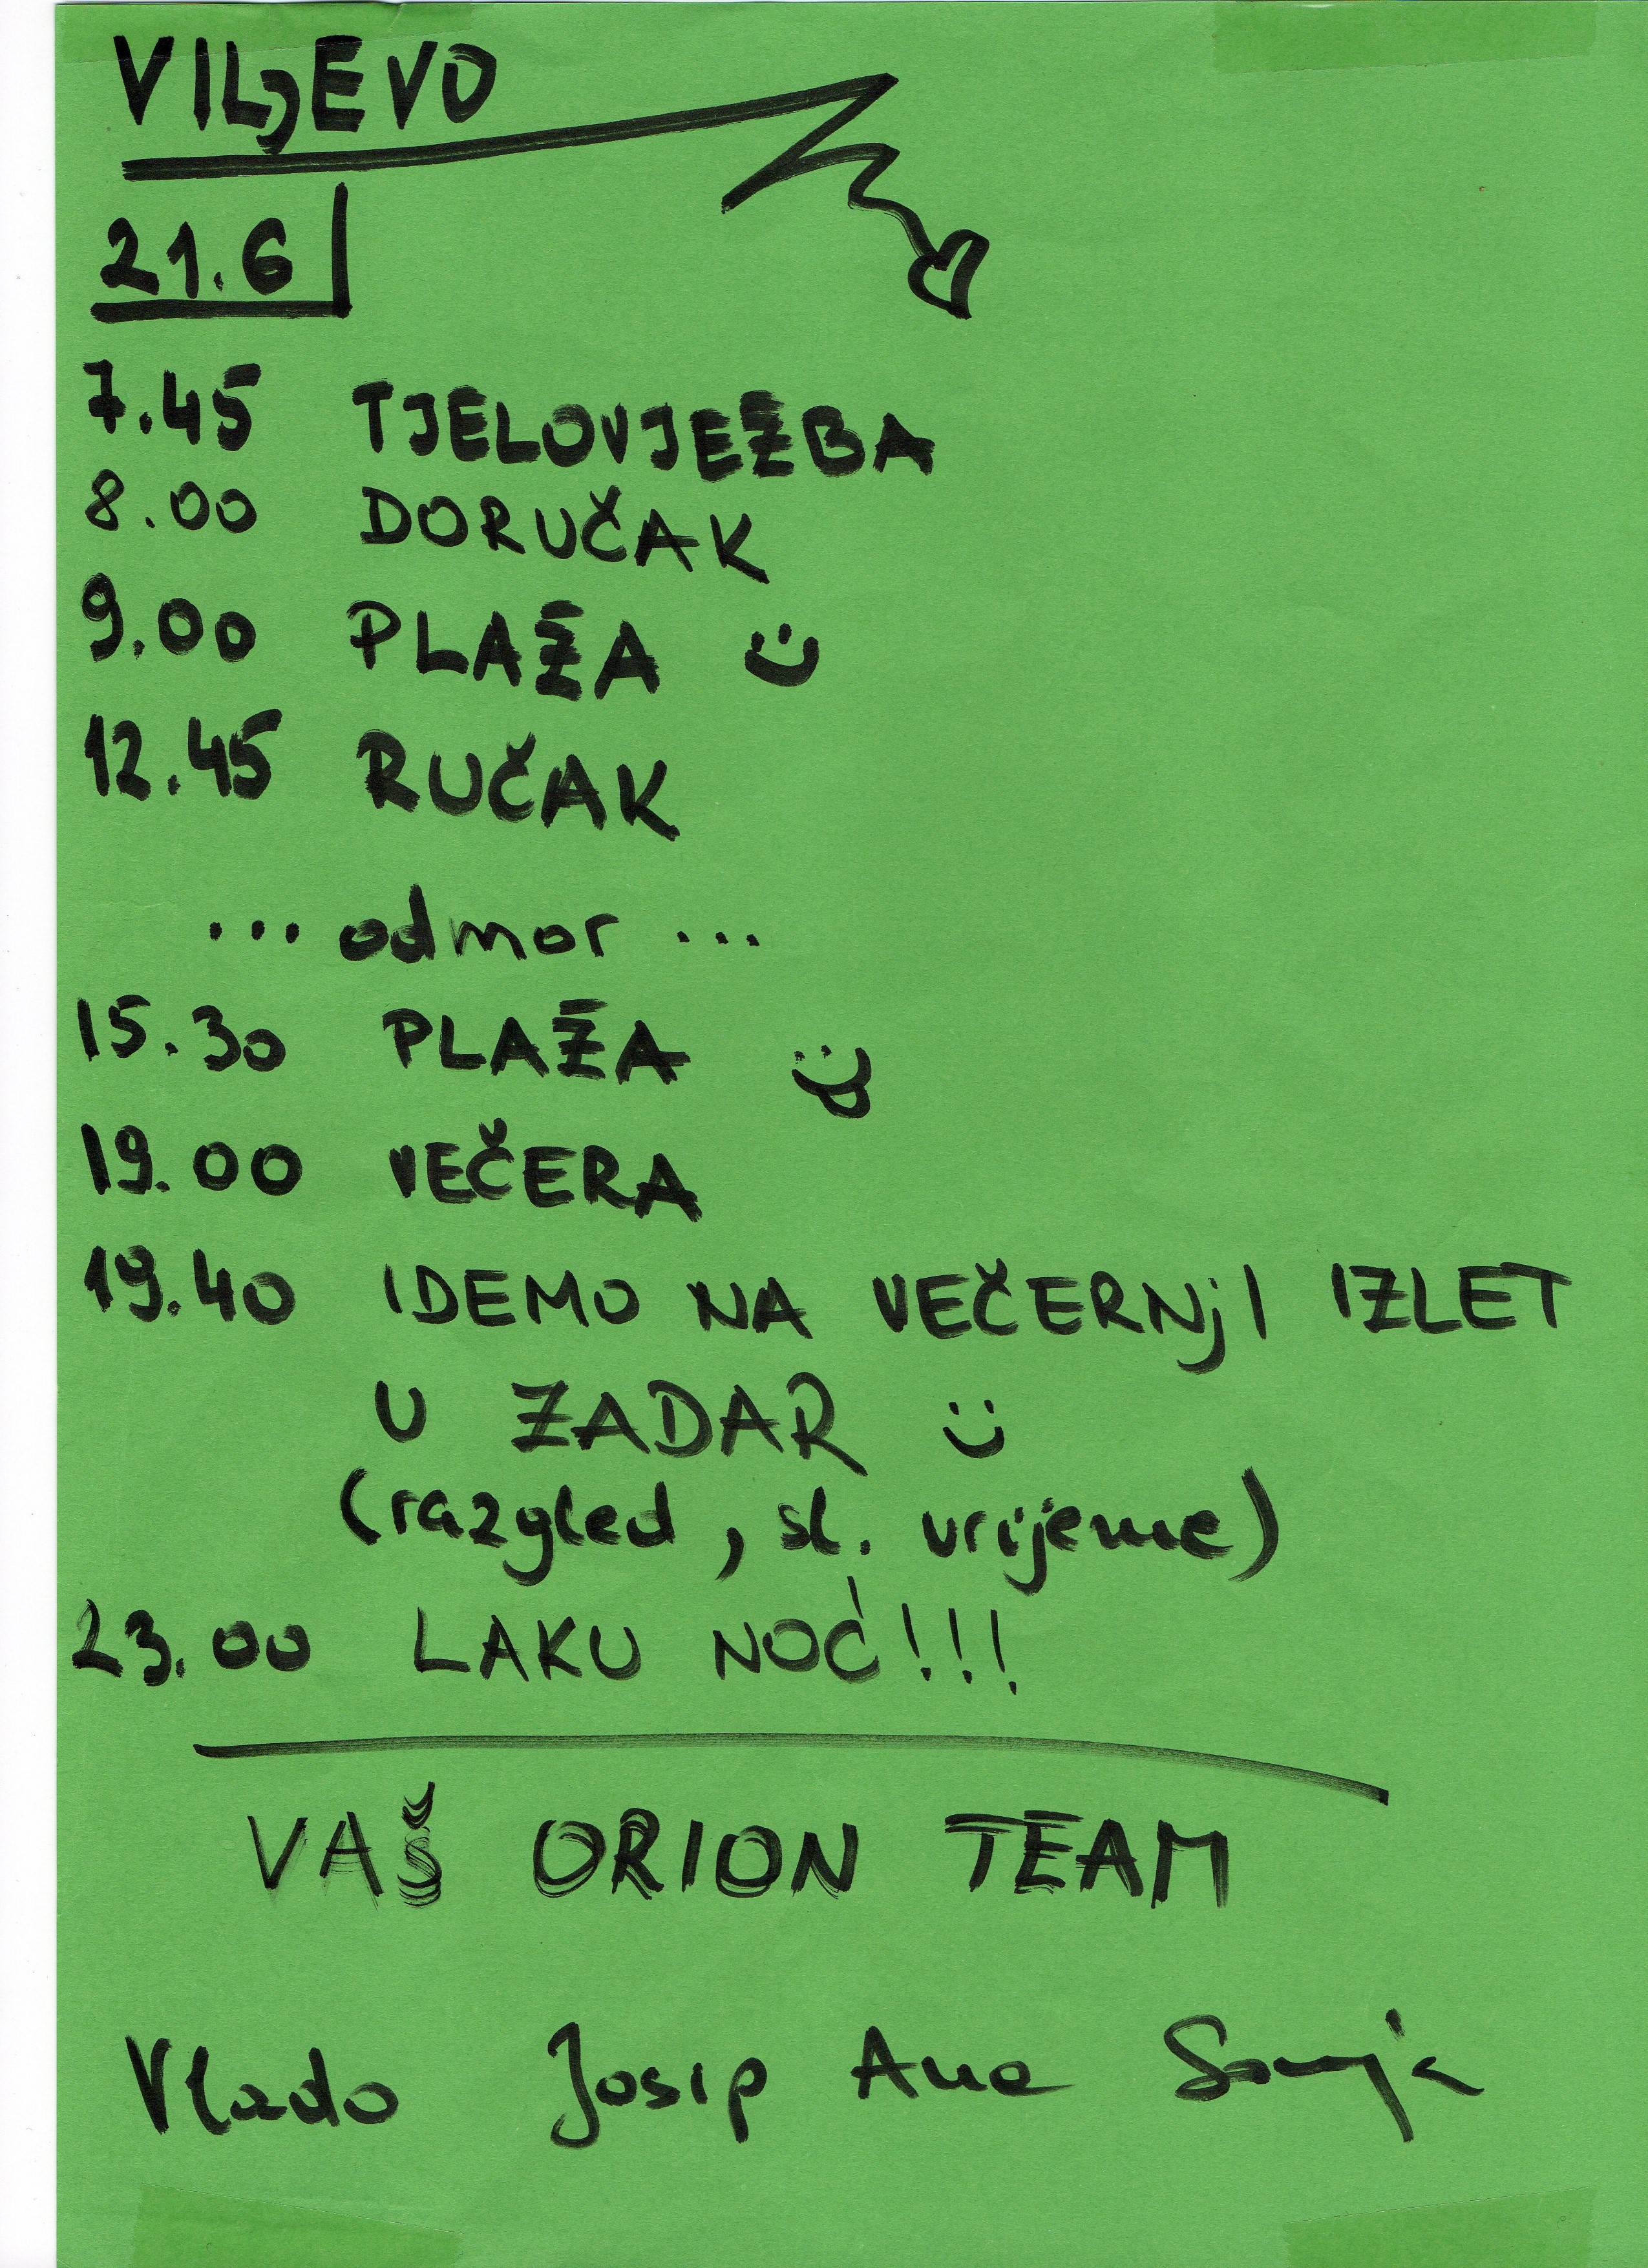 VILJEVO
21.6
7.45 TJELOVJEŽBA
8.00 DORUČAK
9.00 PLAŽA
12.45 RUČAK
... odmor ...
15.30 PLAŽA
19.00 VEČERA
19.40 IDEMO NA VEČERNjI IZLET
U ZADAR
(razgled, sl. vrijeme)
23.00 LAKU NOĆ!!!
VAŠ ORION TEAM
Vlado Josip Ana Sanja